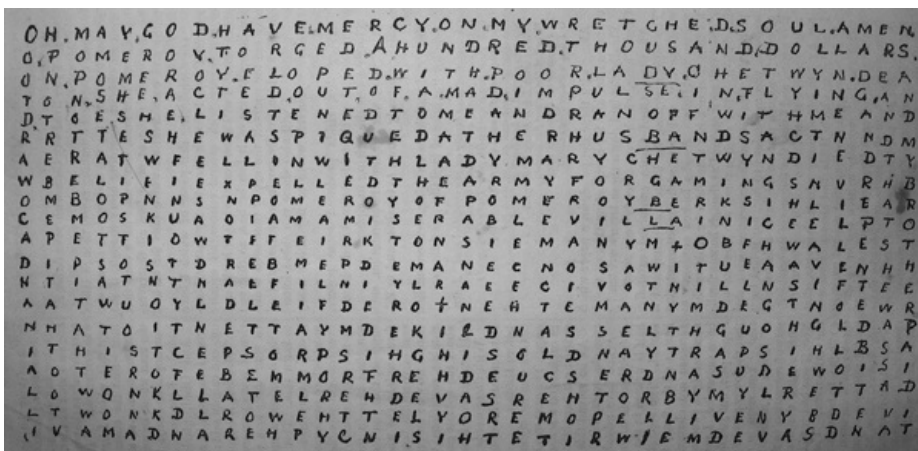 OH.MAY.GOD.HAVE.MERCY.ON.MY.WRETCHED.SOUL.AMEN
O.POMEROY.FORGED.AHUNDRED.THOUSAND.DOLLARS.
ON.POMEROY.ELOPED.WITH.POOR.LADY.CHETWYN.DEA
TON.SHE.ACTED.OUT.OF.A.MAD.IMPULSE.IN.FLYING.AN
DTOESHELISTENEDTOMEANDRANOFFWITHMEAND
RRTTESHEWASPIQUEDATHERHUSBANDSACTNNDM
AERATWFELLINWITHLADYMARYCHETWYNDIEDTY
WBELIFIEXPELLEDTHEARMYFORGAMINGSNURHB
OMBOPNNSNPOMEROYOFPOMEROYBERKSIHLIEAR
CEMOSKUAOIAMAMISERABLEVILLAINICEELPTO
APETTIOWTFFEIRKTONSIEMANYM+OBFHWALEST
DIPSOSTDREBMEPDEMANECNOSAWITUEAAVENHH
NTIATNTHAEFILNIYLRAEECIVOTNILLNSIFTEE
AATWUOYLDLEIFDEROTNEHTEMANYMDEGTNOEWR
NHATOITNETTAYMDEKILDNASSELTHGUOHGLDAP
ITHISTCEPSORPSIHGHISOLDNAYTRAPSIHLBSA
AOTEROFEBEMMORFREHDEUCSERDNASUDEWOISI
LOWONKLLATELREHDEVASREHTORBYMYLRETTAD
LTWONKDLROWEHTTELYOREMOPELLIVENYBDEVI
.IVAMADNAREHPYCNISIHTETIRWIEMDEVASDNAT